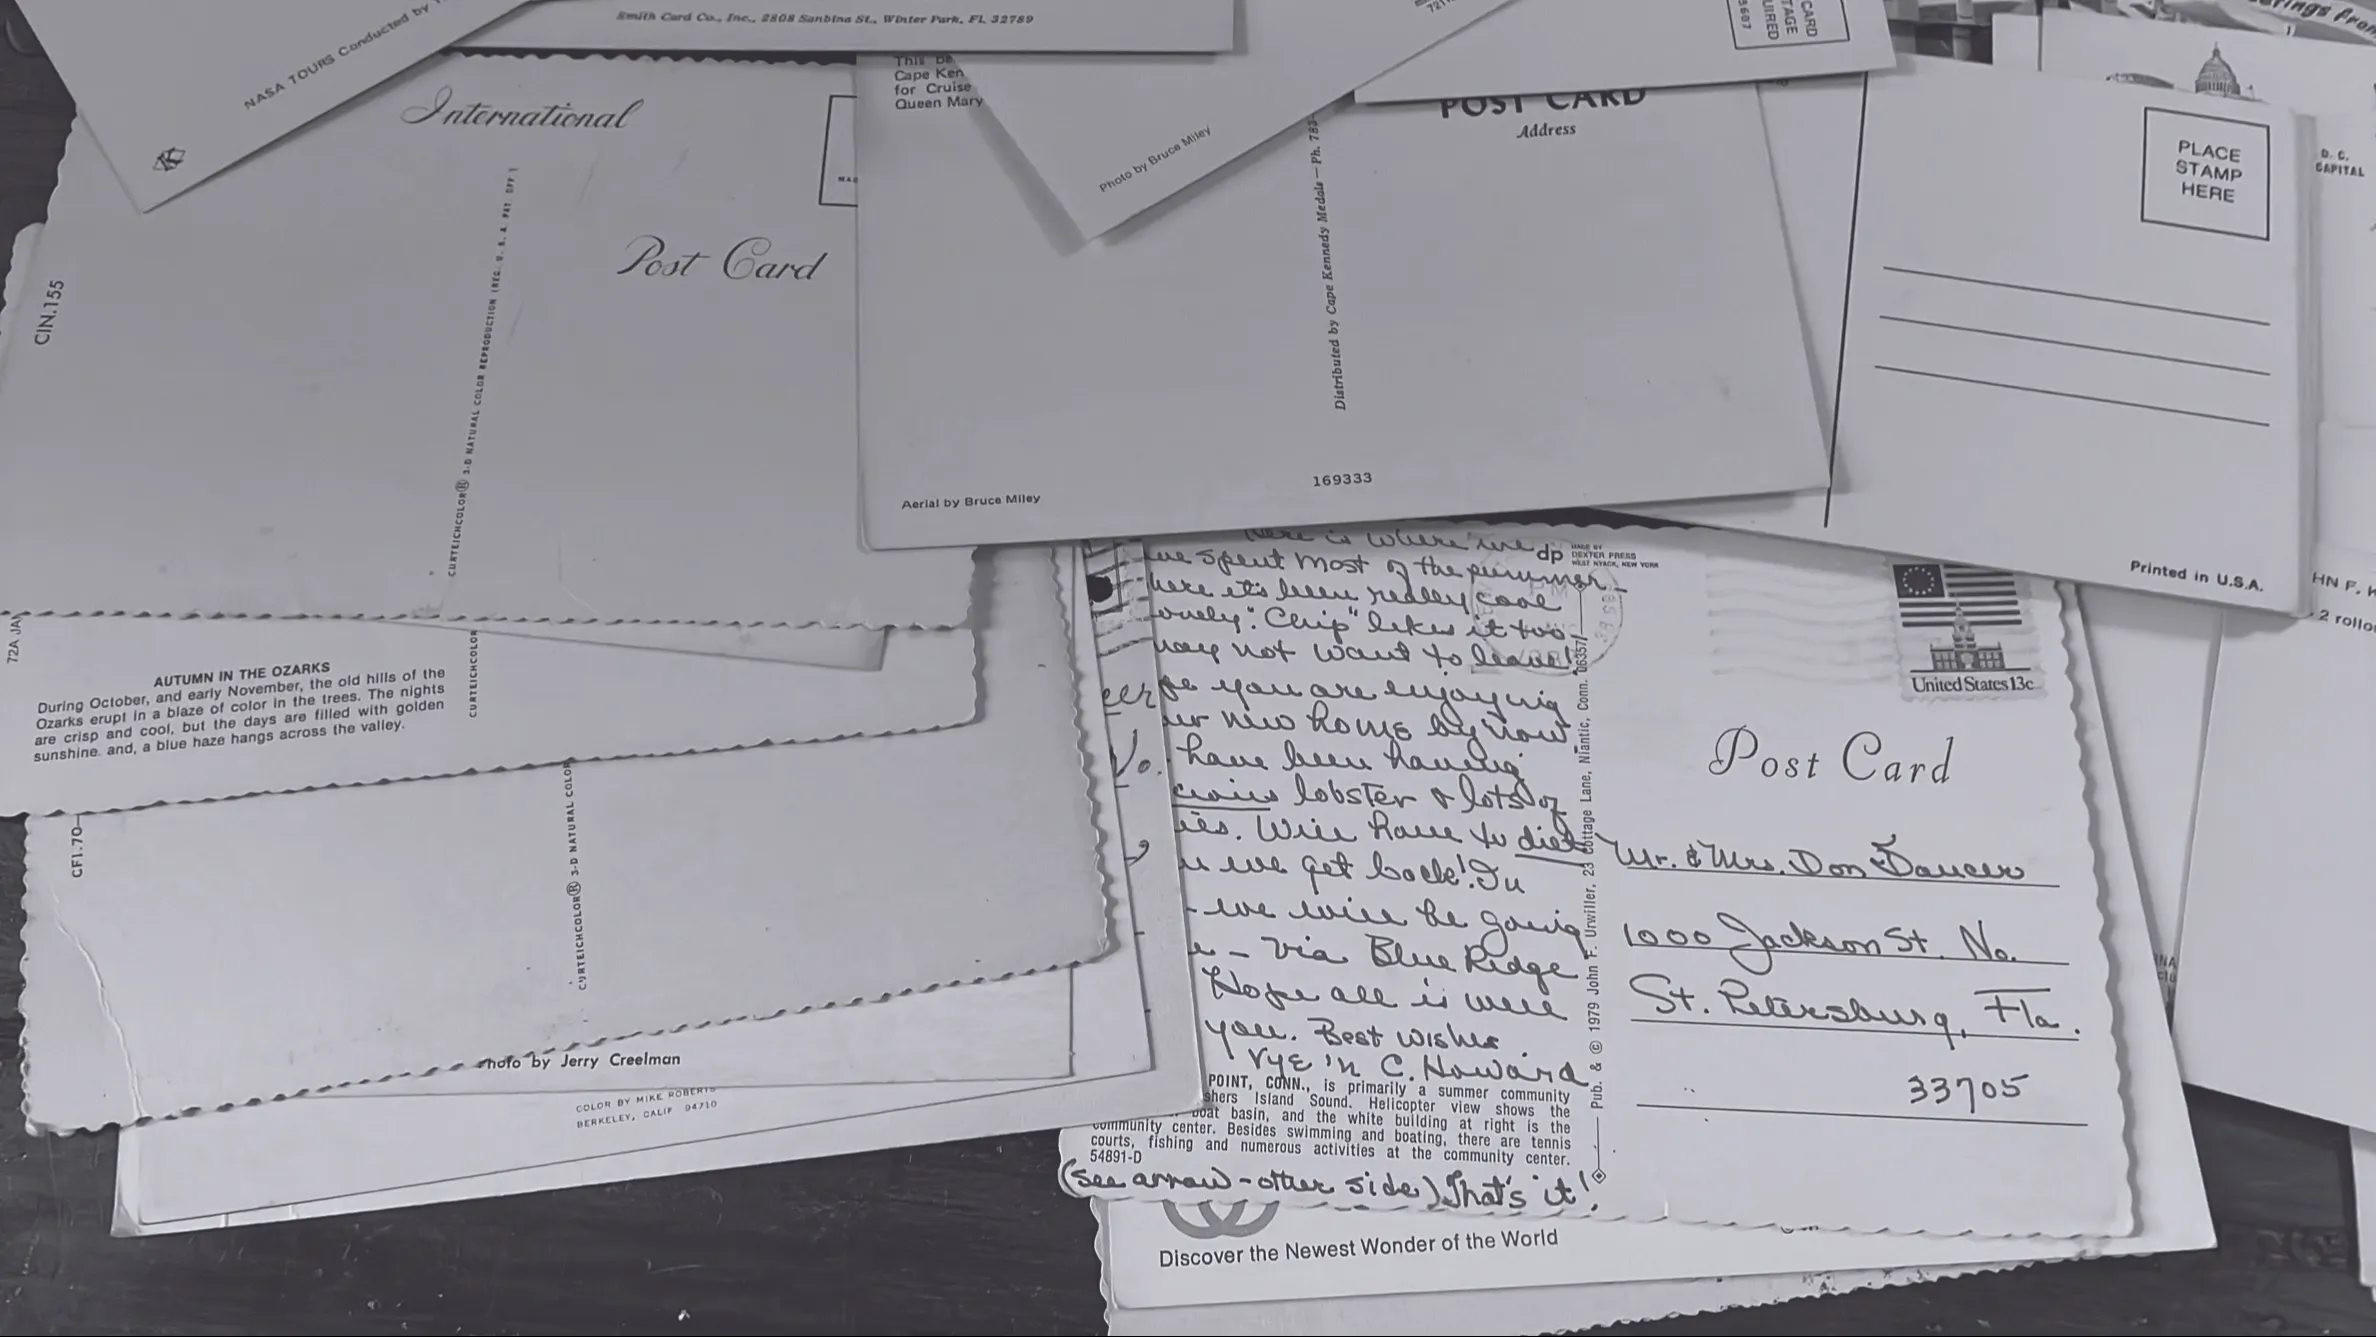 NASA TOURS Conducted by
Smith Card Co., Inc., 2808 Sanbina St., Winter Park, FL 32789
International
Post Card
CIN.155
CURTEICHCOLOR® 3-D NATURAL COLOR REPRODUCTION (REG. U.S.A. PAT. OFF.)
This be
Cape Ken
for Cruise
Queen Mary
Photo by Bruce Miley
POST CARD
Address
Distributed by Cape Kennedy Medals — Ph. 783-
Aerial by Bruce Miley
169333
CARD
TAGE
UIRED
5607
PLACE
STAMP
HERE
Printed in U.S.A.
D. C.
CAPITAL
HN F. K
2 rollo
72A JA
AUTUMN IN THE OZARKS
During October, and early November, the old hills of the
Ozarks erupt in a blaze of color in the trees. The nights
are crisp and cool, but the days are filled with golden
sunshine. and, a blue haze hangs across the valley.
CURTEICHCOLOR
CF1.70
CURTEICHCOLOR® 3-D NATURAL COLOR
Photo by Jerry Creelman
COLOR BY MIKE ROBERTS
BERKELEY, CALIF 94710
Here is where we
we spent most of the summer
here it's been really cool
ovely. "Chip" likes it too
may not want to leave!
pe you are enjoying
ur new home by now
have been having
cious lobster & lots of
ies. Will have to diet
n we get back! In
we will be going
e - via Blue Ridge
Hope all is well
you. Best wishes
Vye 'n C. Howard
POINT, CONN., is primarily a summer community
shers Island Sound. Helicopter view shows the
boat basin, and the white building at right is the
community center. Besides swimming and boating, there are tennis
courts, fishing and numerous activities at the community center.
54891-D
(see arrow - other side) That's it!
dp
MADE BY
DEXTER PRESS
WEST NYACK, NEW YORK
Pub. & © 1979 John F. Urwiller, 23 Cottage Lane, Niantic, Conn. 06357
United States 13c
Post Card
Mr. & Mrs. Don Daucer
1000 Jackson St. No.
St. Petersburg, Fla.
33705
Discover the Newest Wonder of the World